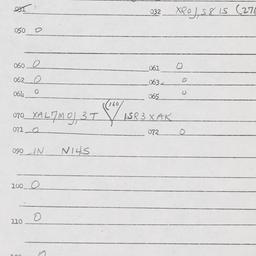 031 032 XROJ, S8 IS (27
050 0
060 0 061 0
062 0 063 0
064 0 065 0
(160)
070 XAL7MOJ, 3T 1SR3XAK
071 0 072 0
090 IN N14S
100 0
110 0